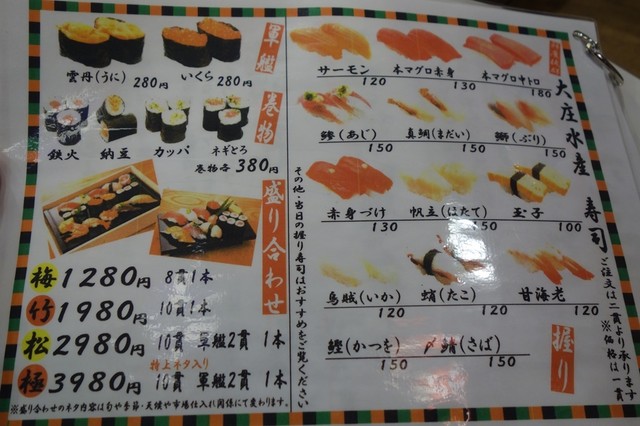 軍艦
雲丹(うに) 280円
いくら 280円
巻物
鉄火 納豆 カッパ ネギとろ
巻物各 380円
盛り合わせ
梅 1280円 8貫1本
竹 1980円 10貫1本
松 2980円 10貫 軍艦2貫 1本
特上ネタ入り
極 3980円 10貫 軍艦2貫 1本
※盛り合わせのネタ内容は旬や季節・天候や市場仕入れ関係にて変わります。
その他・当日の握り寿司はおすすめをご覧ください
大庄水産 寿司
ご注文は二貫より承ります
※価格は一貫
握り
サーモン 120
本マグロ赤身 130
本マグロ中トロ 180
鯵(あじ) 150
真鯛(まだい) 150
鰤(ぶり) 150
赤身づけ 130
帆立(ほたて) 150
玉子 100
烏賊(いか) 120
蛸(たこ) 120
甘海老 120
鰹(かつを) 150
〆鯖(さば) 150